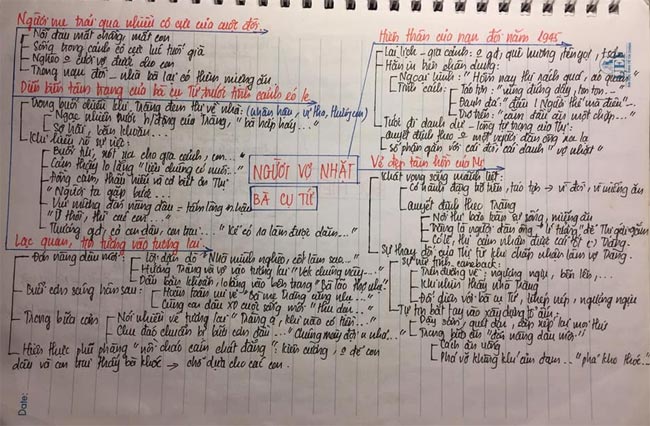 Người mẹ trải qua nhiều cơ cực của cuộc đời
Nỗi đau mất chồng, mất con
Sống trong cảnh cơ cực lúc tuổi già
Nghèo o cưới vợ được cho con
Trong nạn đói - nhà bà lại có thêm miệng ăn
Diễn biến tâm trạng của bà cụ Tứ trước tình cảnh éo le
Trong buổi chiều khi Tràng đem thị về nhà: (nhân hậu, vị tha, thương con)
Ngạc nhiên trước h/động của Tràng, "bà hấp háy..."
Sợ hãi, băn khoăn...
Khi hiểu rõ sự việc:
Buồn tủi, xót xa cho gia cảnh, con..."
Cảm thấy lo lắng "liệu chúng có nuôi..."
Đồng cảm, thấu hiểu và có
"Người ta gặp bước..."
Vui mừng đón nàng dâu = tấm lòng n.hậu
"Ừ thôi, thì các con..."
Thương g/đ có con dâu, con trai... "Kể có ra làm được dăm..."
Lạc quan, tin tưởng vào tương lai
Đón nàng dâu mới:
Lời dặn dò "Nhà mình nghèo, cốt làm sao..."
Hướng Tràng và vợ vào tương lai "Vợ chồng mày..."
Dấu băn khoăn, lo lắng vào bên trong "Bà lão thở nhẹ"
Buổi cơm sáng hôm sau:
Hoàn toàn vui vẻ "bà mẹ Tràng cũng nhẹ..."
Cùng con dâu XD cuộc sống mới "thu dọn..."
Trong bữa cơm
Nói nhiều về tương lai "Tràng ạ, khi nào có tiền..."
Chu đáo chuẩn bị bữa cơm đầu... "Chúng mày đợi u nhá..."
Hiện thực phũ phàng "nồi cháo cám chát đắng": kiên cường, o để con
dâu và con trai thấy bà khóc → chỗ dựa cho các con.
NGƯỜI VỢ NHẶT
BÀ CỤ TỨ
Hiện thân của nạn đói năm 1945
Lai lịch - gia cảnh: o gđ, quê hương, tên gọi, tsản
Hằn in trên chân dung:
Ngoại hình: "Hôm nay thị rách quá, áo quần..."
Tính cách:
Táo tợn: "vùng đứng dậy, ton ton..."
Đanh đá: "điêu! Người thế mà điêu"...
Trơ trẽn: "cắm đầu ăn một chặp..."
Tước đi danh dự - lòng tự trọng của Thị:
Quyết định theo o một người đàn ông xa lạ
Số phận gắn với cái đói, cái danh "vợ nhặt"
Vẻ đẹp tâm hồn của Nv
Khát vọng sống mãnh liệt:
Có hành động trơ trẽn, táo tợn → vì đói, vì miếng ăn
Quyết định theo Tràng
Nơi thị bấu bám sự sống, miếng ăn
Tràng là người đàn ông "lí tưởng" để Thị gửi gắm
Có lẽ, thị cảm nhận được cái tốt ở Tràng.
Sự thay đổi của Thị từ khi chấp nhận làm vợ Tràng:
Sự nữ tính comeback:
Trên đường về: ngượng ngịu, bẽn lẽn,...
Khi nhìn thấy nhà Tràng
Đối diện với bà cụ Tứ, khép nép, ngượng ngịu
Tự tin bắt tay vào xây dựng tổ ấm:
Dậy sớm, quét dọn, sắp xếp lại mọi thứ
Trong bữa ăn "đón nàng dâu mới":
Cách ăn uống
Phá vỡ không khí ảm đạm... "phá kho thóc..."
Date: